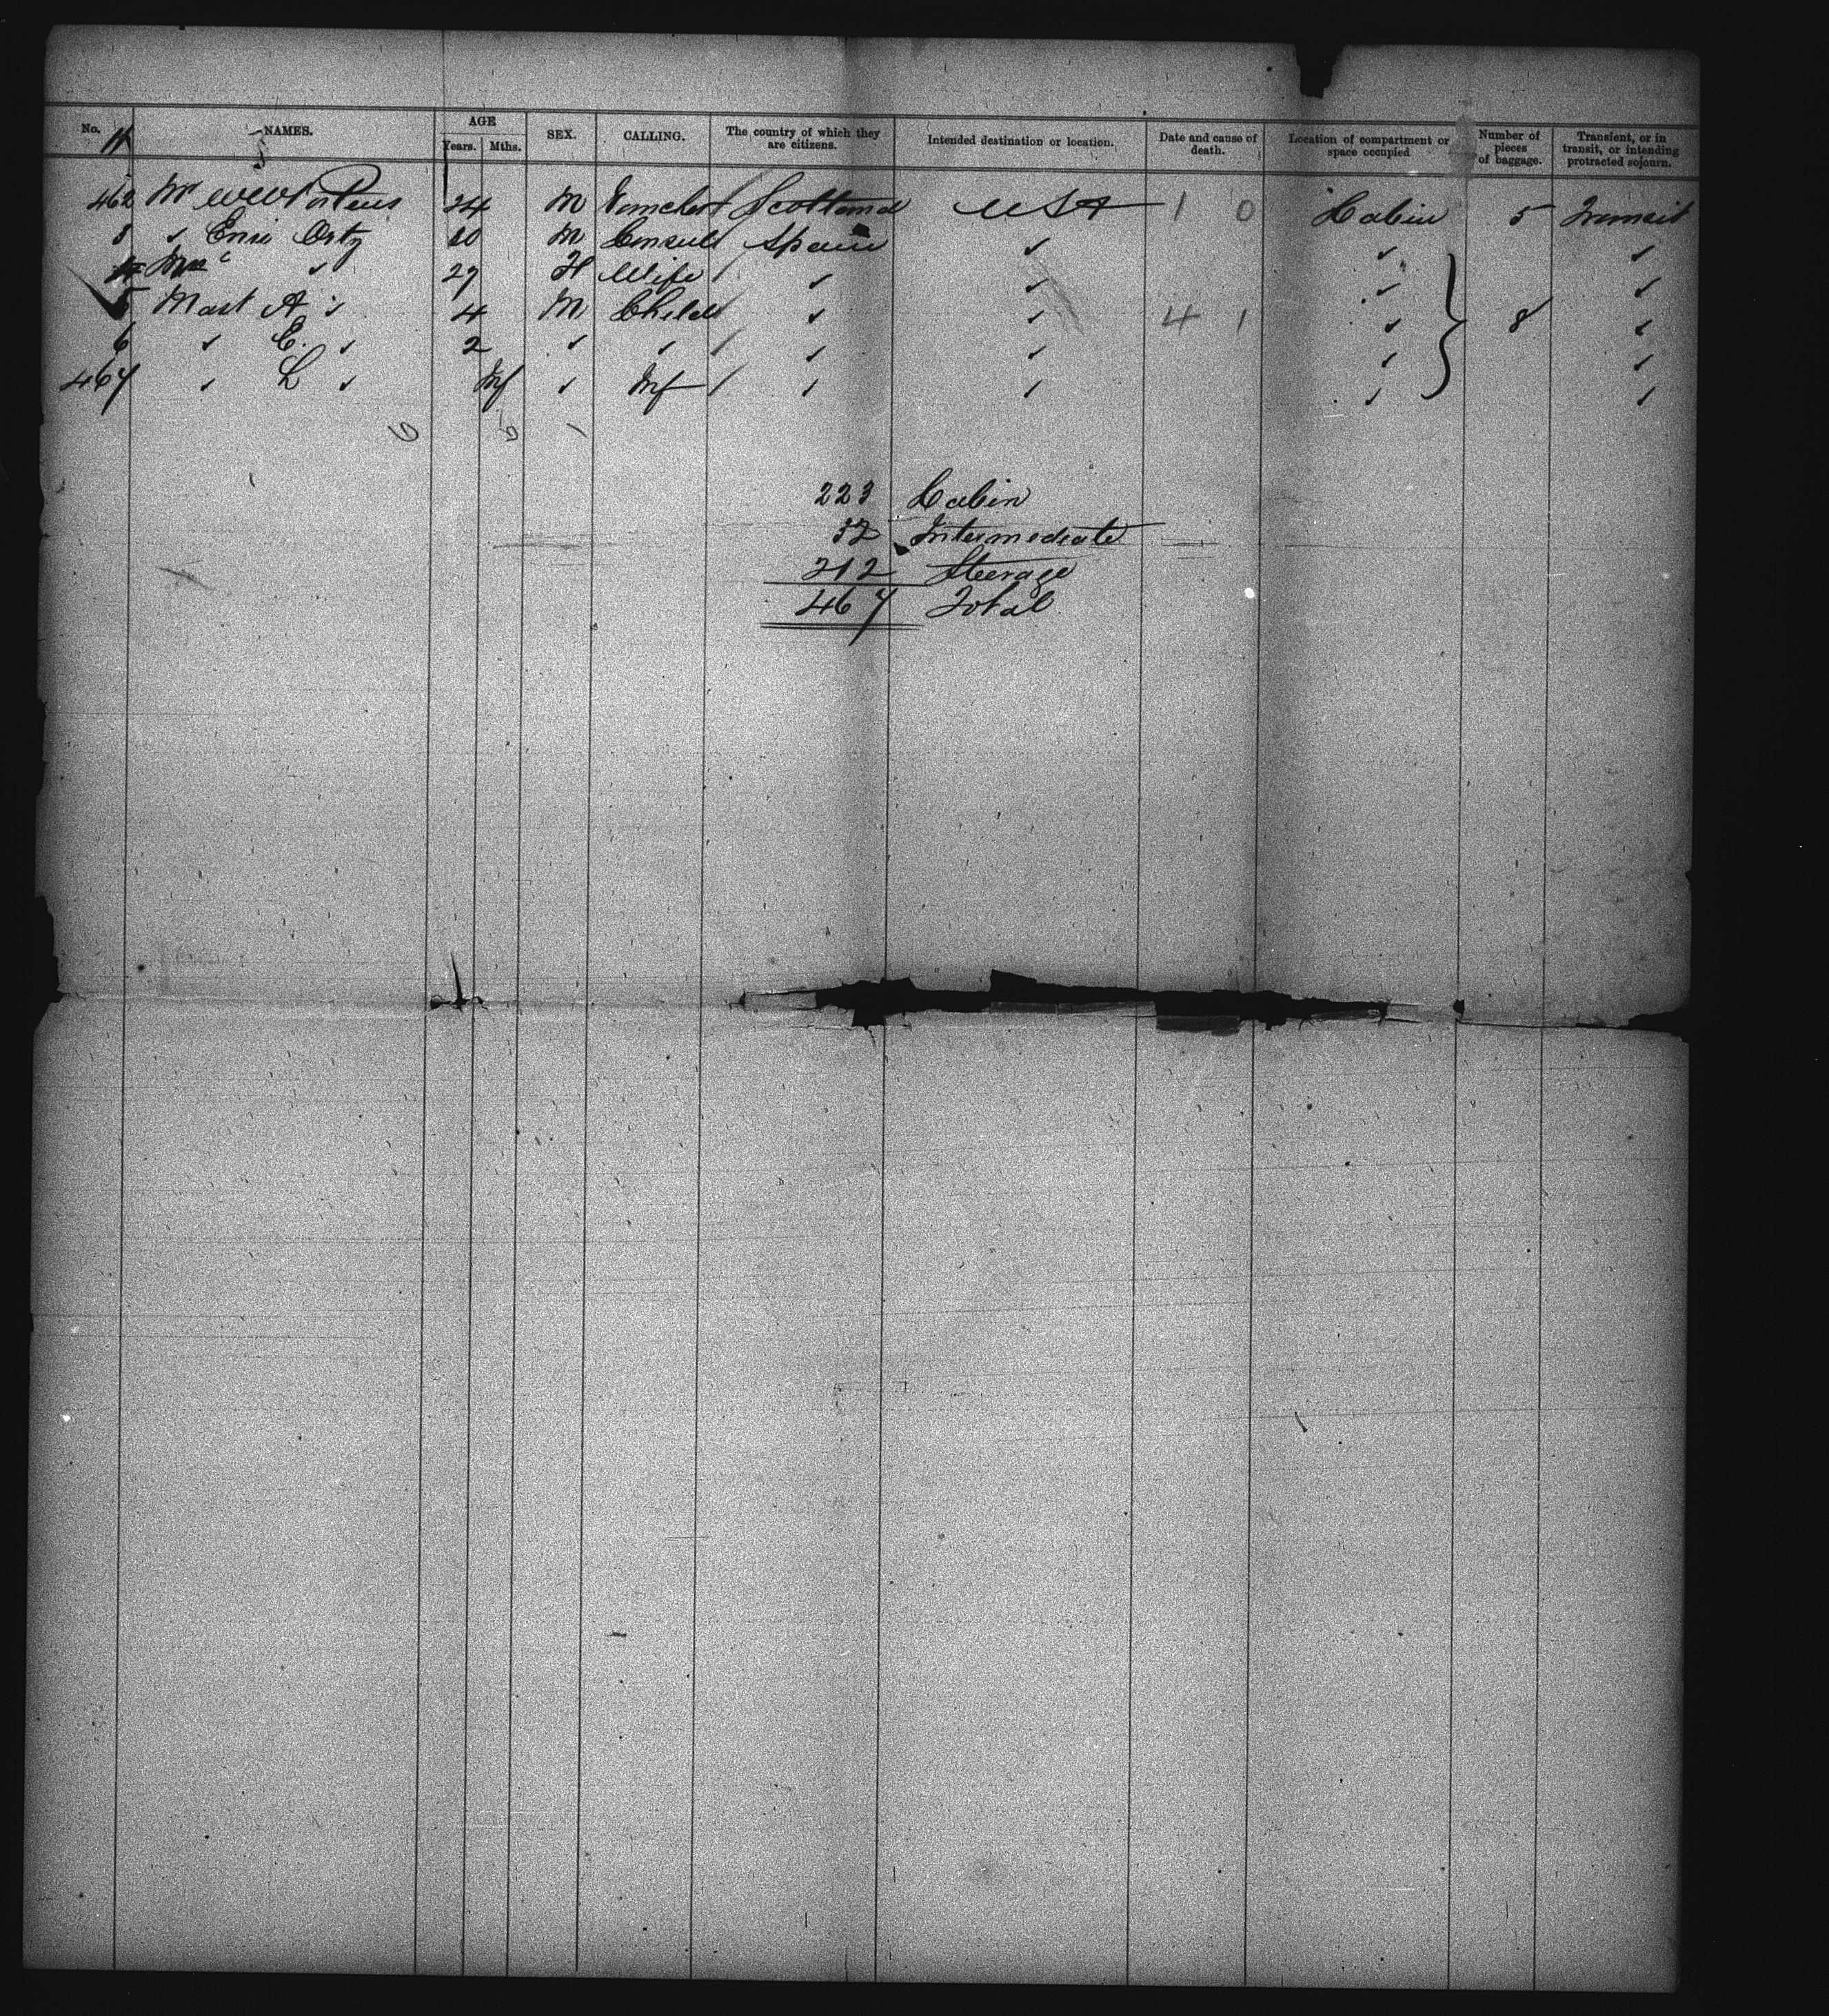 No. NAMES. AGE Years. Mths. SEX. CALLING. The country of which they are citizens. Intended destination or location. Date and cause of death. Location of compartment or space occupied Number of pieces of baggage. Transient, or in transit, or intending protracted sojourn.
462 Mr 24 M Scotland USA 1 0 Cabin 5 Transit
3 ✓ Orty M Consul Spain ✓ ✓ ✓
4 Mrs ✓ 27 F Wife ✓ ✓ ✓ ✓
5 Mast A ✓ 4 M Child ✓ ✓ 4 1 ✓ 8 ✓
6 ✓ E. ✓ 2 ✓ ✓ ✓ ✓ ✓ ✓
467 ✓ L ✓ Inf ✓ Inf ✓ ✓ ✓ ✓
223 Cabin
32 Intermediate
212 Steerage
467 Total